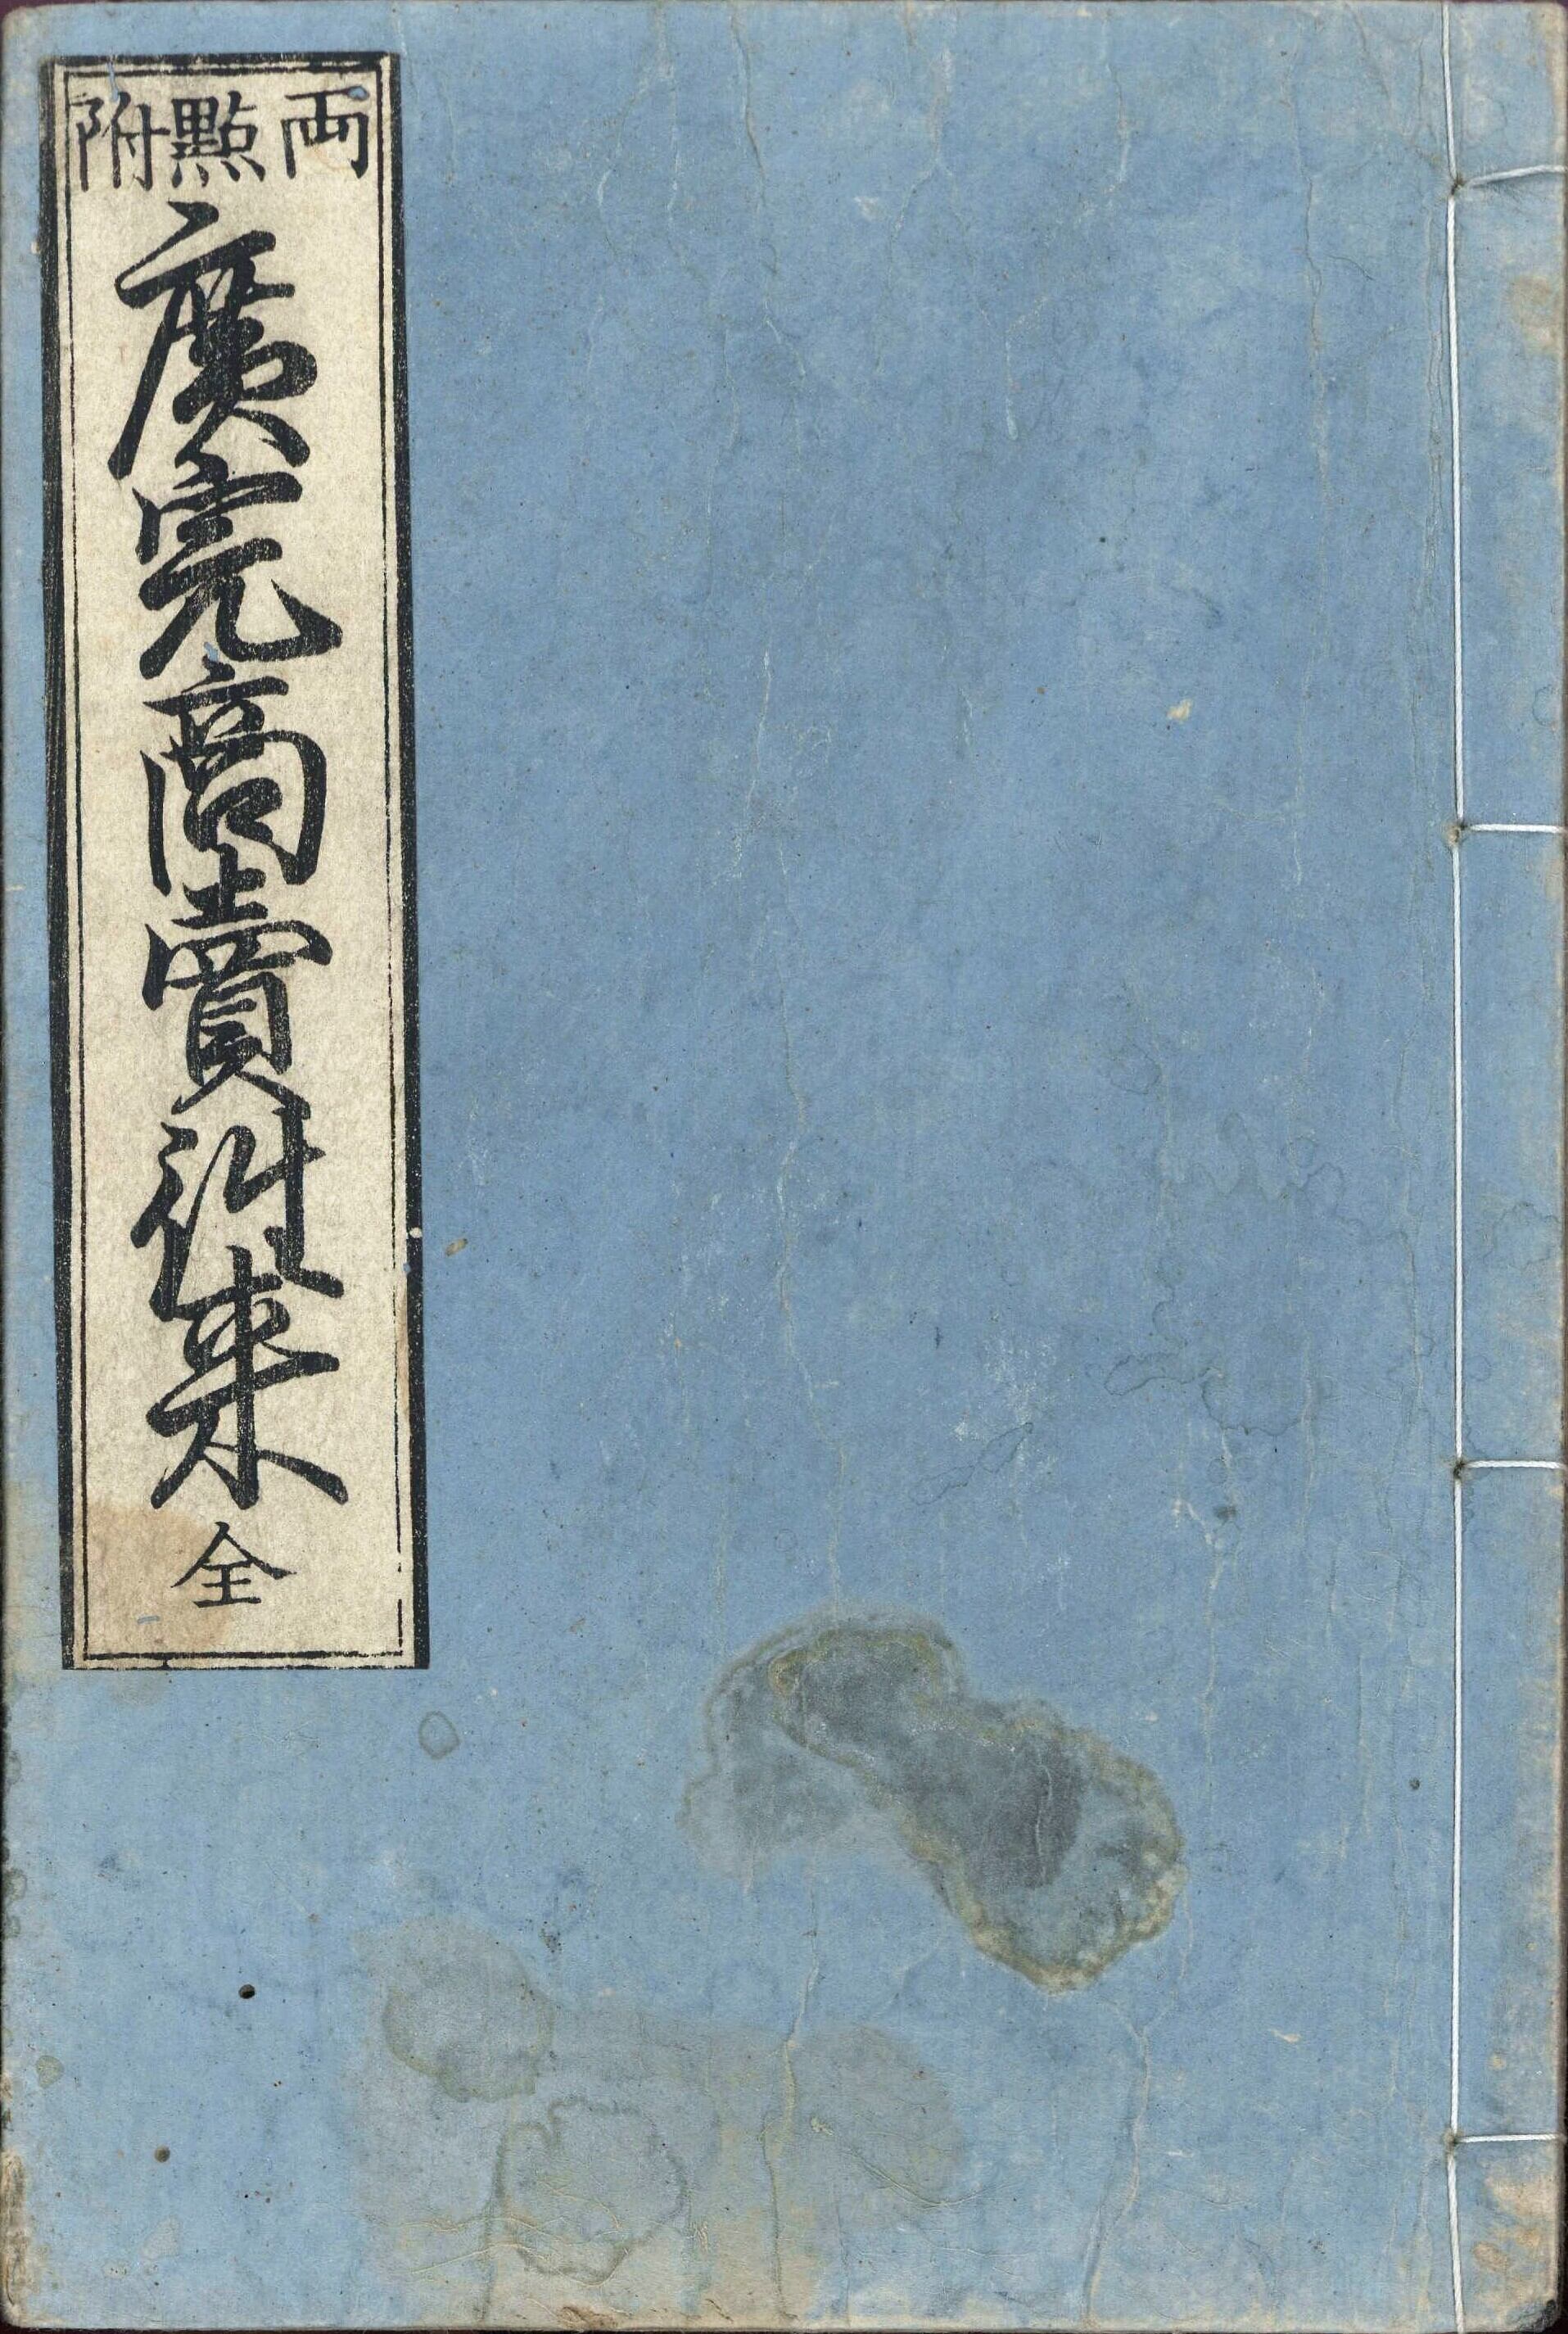 両點附
廣完商賣徃来
全